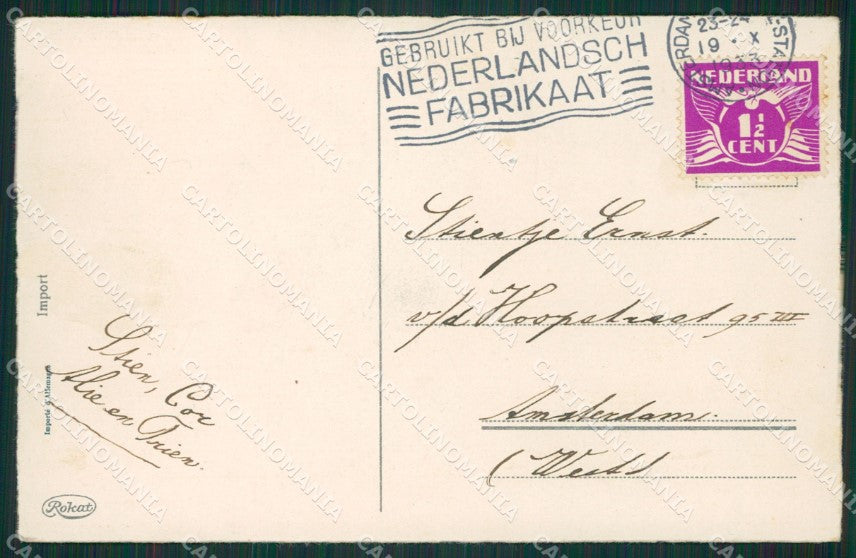 GEBRUIKT BIJ VOORKEUR
NEDERLANDSCH
FABRIKAAT
23-24
19 X
NEDERLAND
1½
CENT
Stientje Ernst.
v/d Hoopstraat 95 III
Amsterdam.
(West)
Import
Importé d'Allemagne
Stien, Cor
Alie en Trien.
Rokat
CARTOLINOMANIA